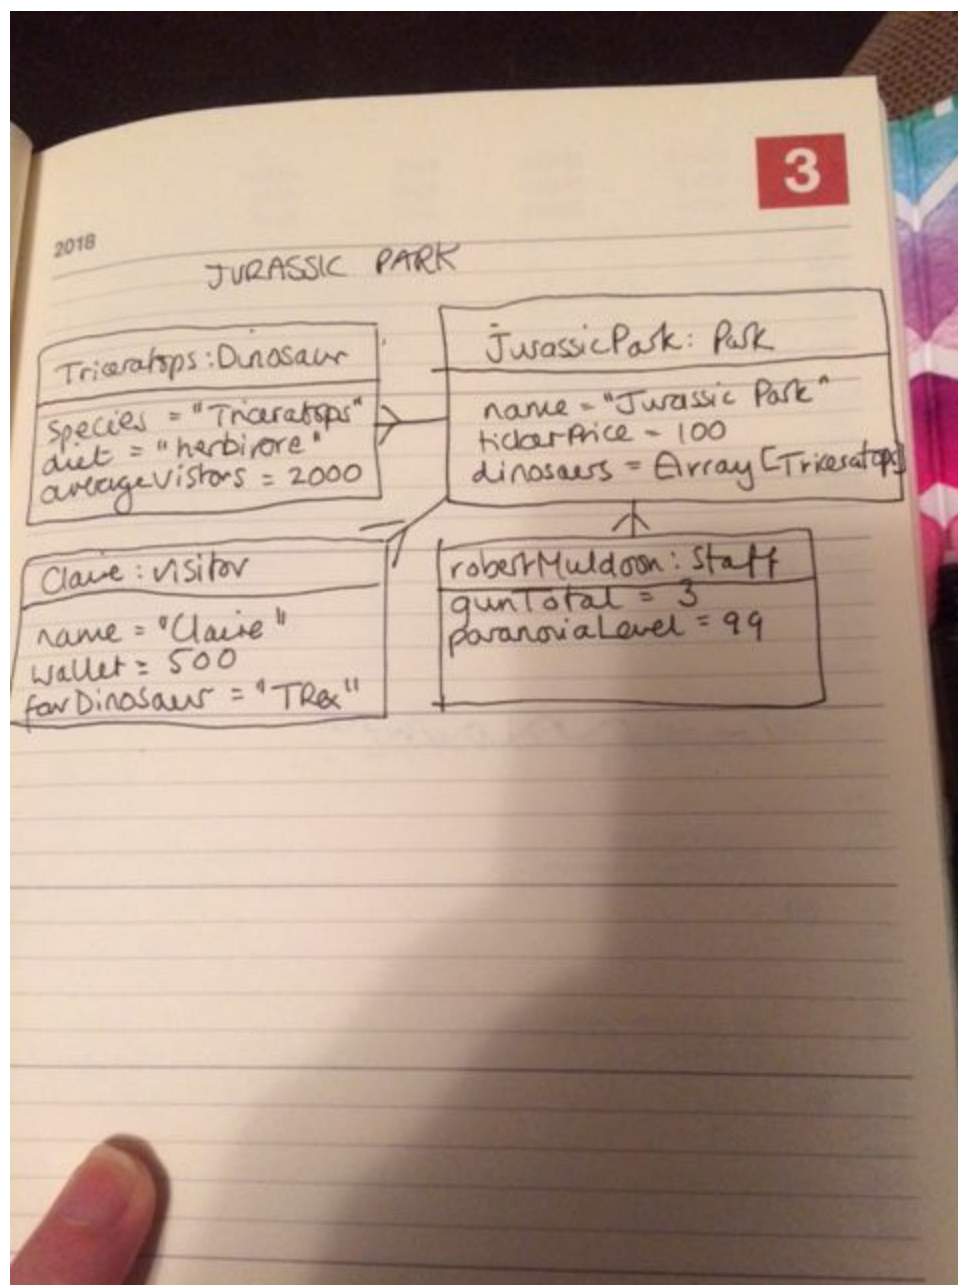 3
2018
JURASSIC PARK
Triceratops : Dinosaur
species = "Triceratops"
diet = "herbivore"
averageVistors = 2000
jurassicPark : Park
name = "Jurassic Park"
ticketPrice = 100
dinosaurs = Array [Triceratops]
Claire : visitor
name = "Claire"
wallet = 500
favDinosaur = "TRex"
robertMuldoon : Staff
gunTotal = 3
paranoiaLevel = 99